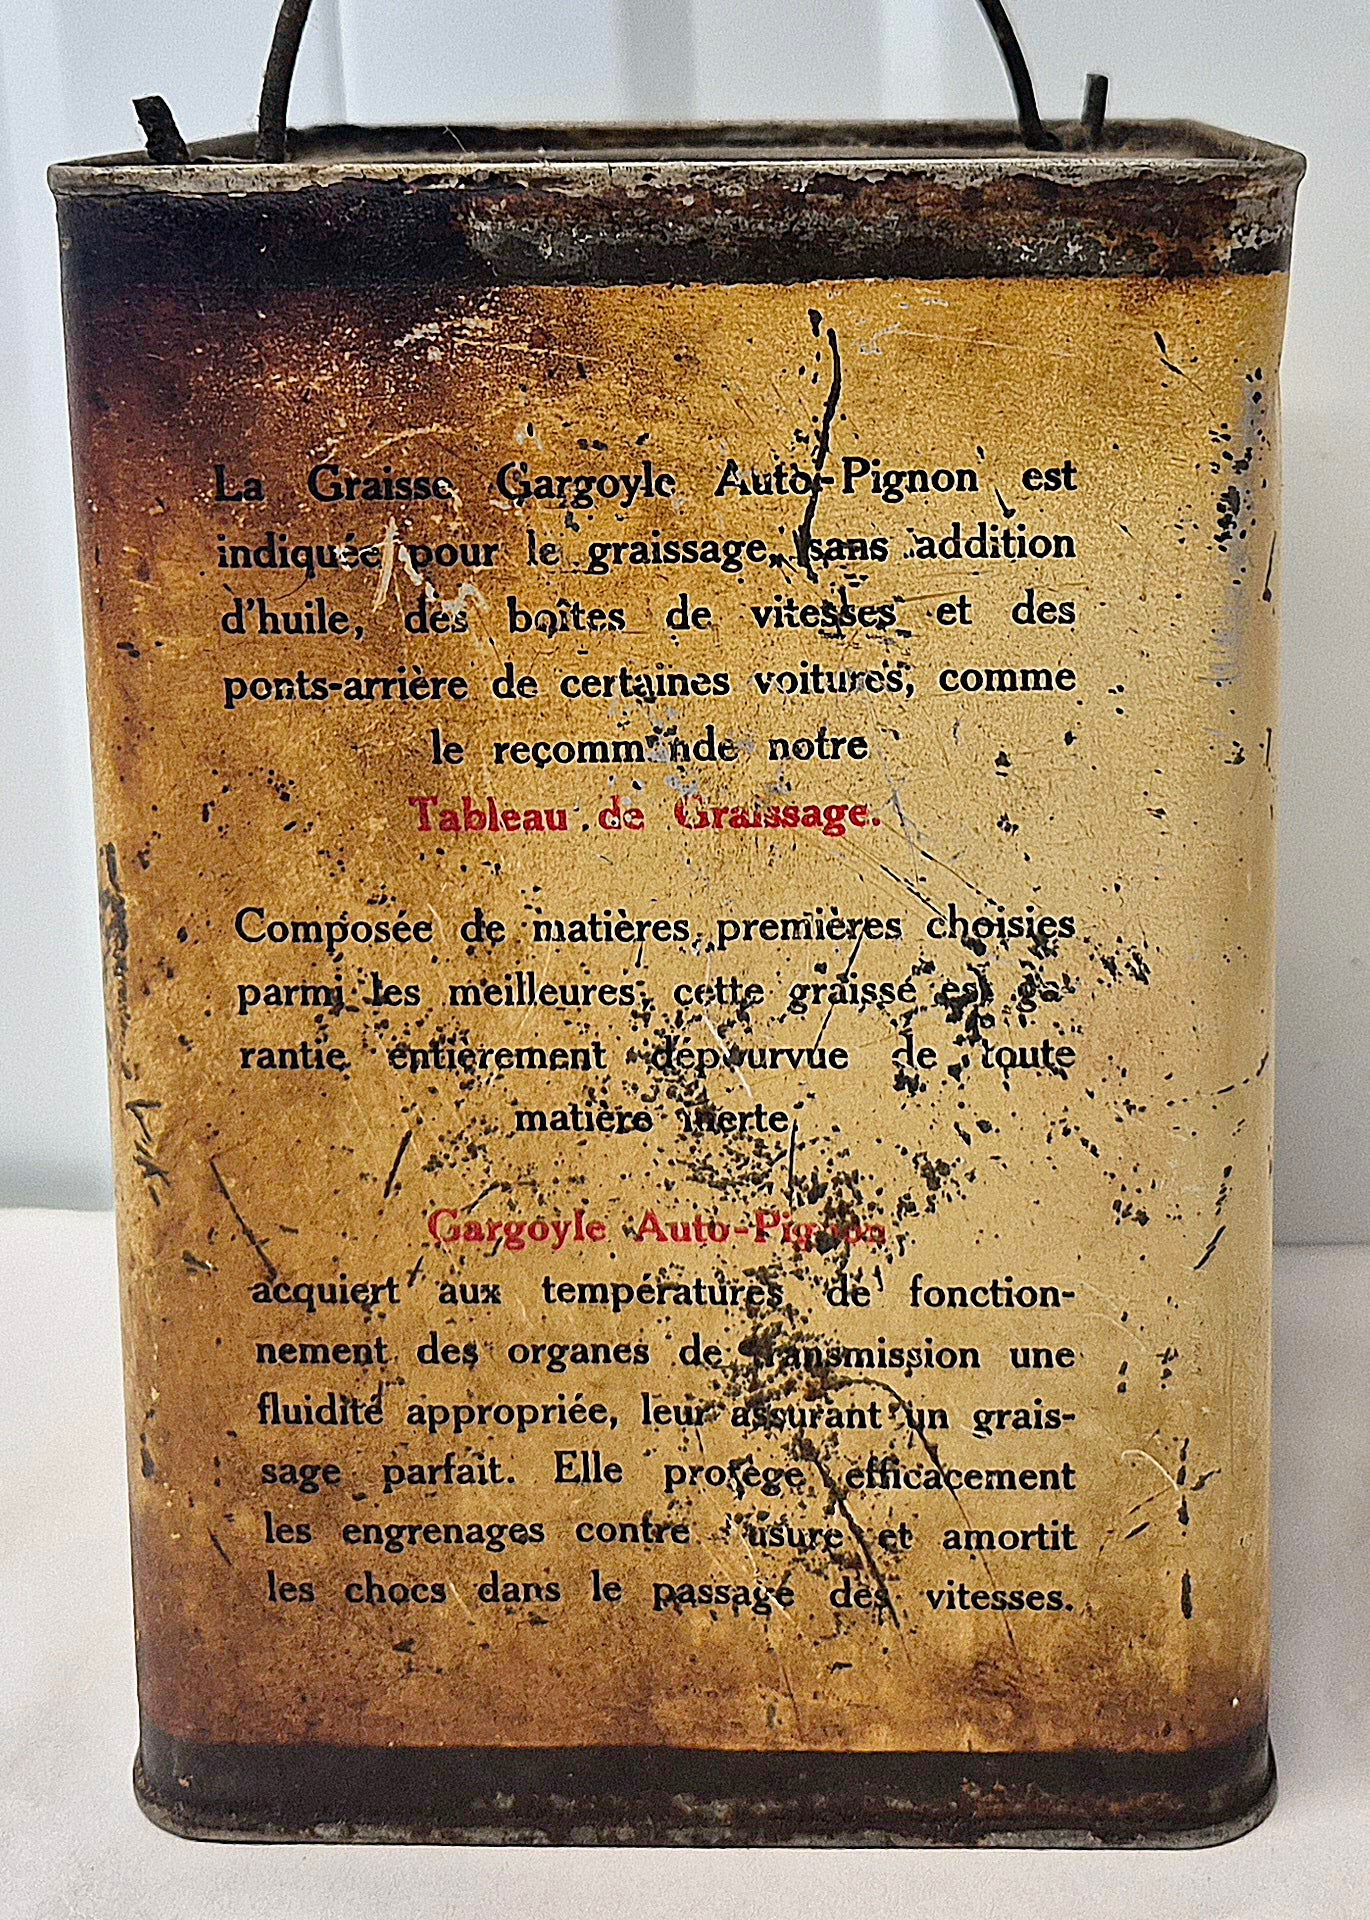 La Graisse Gargoyle Auto-Pignon est
indiquée pour le graissage, sans addition
d'huile, des boîtes de vitesses et des
ponts-arrière de certaines voitures, comme
le recommande notre
Tableau de Graissage.
Composée de matières premières choisies
parmi les meilleures, cette graisse est ga-
rantie entièrement dépourvue de toute
matière inerte
Gargoyle Auto-Pignon
acquiert aux températures de fonction-
nement des organes de transmission une
fluidité appropriée, leur assurant un grais-
sage parfait. Elle protège efficacement
les engrenages contre l'usure et amortit
les chocs dans le passage des vitesses.